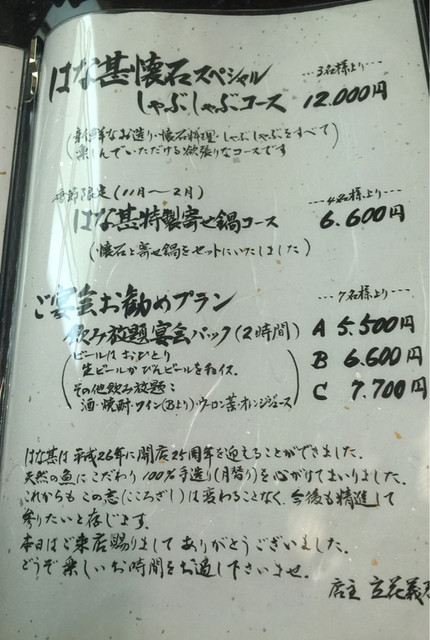 はな甚懐石スペシャル ---3名様より---
しゃぶしゃぶコース 12.000円
(新鮮なお造り・懐石料理・しゃぶしゃぶをすべて
楽しんでいただける欲張りなコースです)
季節限定(11月～2月) ---4名様より---
はな甚特製寄せ鍋コース 6.600円
(懐石と寄せ鍋をセットにいたしました)
ご宴会お勧めプラン ---7名様より---
飲み放題宴会パック(2時間) A 5.500円
(ビールはおひとり B 6.600円
生ビールかびんビールをチョイス. C 7.700円
その他飲み放題:
酒・焼酎・ワイン(Bより)・ウーロン茶・オレンジジュース)
はな甚は平成26年に開店25周年を迎えることができました.
天然の魚にこだわり100%手造り(月替り)を心がけてまいりました.
これからもこの志(こころざし)は変わることなく今後も精進して
参りたいと存じます.
本日はご来店賜りましてありがとうございました.
どうぞ楽しいお時間をお過し下さいませ.
店主 立花義